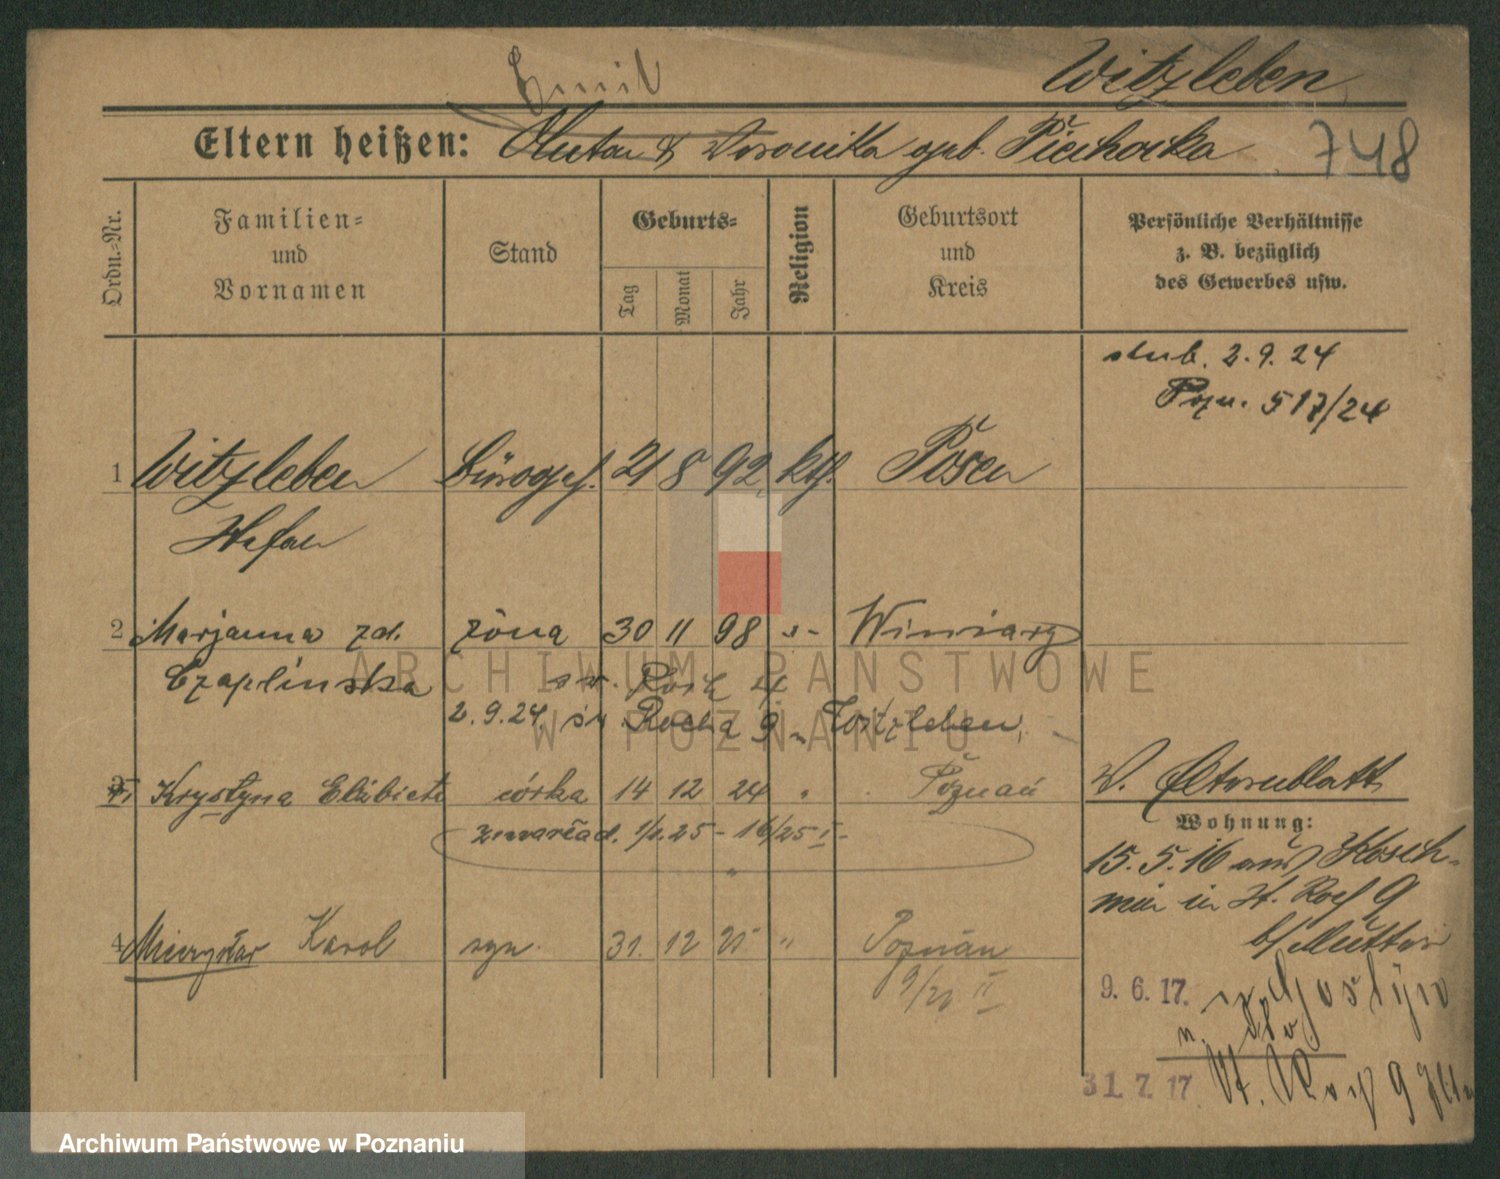 Emil
Witzleben
Eltern heißen: Anton & Veronika geb. Piechocka
748
Ordn.-Nr.
Familien- und Vornamen
Stand
Geburts-
Tag
Monat
Jahr
Religion
Geburtsort und Kreis
Persönliche Verhältnisse
z. B. bezüglich
des Gewerbes usw.
ślub. 2.9.24
Pozn. 517/24
1 Witzleben Bürogeh. 21 8 92 kth. Posen
Stefan
2 Marjanna zd. żona 30 11 98 -"- Winiary
Czaplinska św. Roch 4
2.9.24. św. Rocha 9 Witzleben
Krystyna Elżbieta córka 14 12 24 " Poznań
zmarła d. 1/2.25 - 16/25 I -
V. Elternblatt
Wohnung:
15.5.16 aus Kosch-
min in St. Roch 9
b/ Mutter
4 Mieczysław Karol syn. 31. 12 25 " Poznań
9/26 II
9. 6. 17. Gostyn
n.
31. 7. 17 St. Roch 9
ARCHIWUM PAŃSTWOWE
W POZNANIU
Archiwum Państwowe w Poznaniu